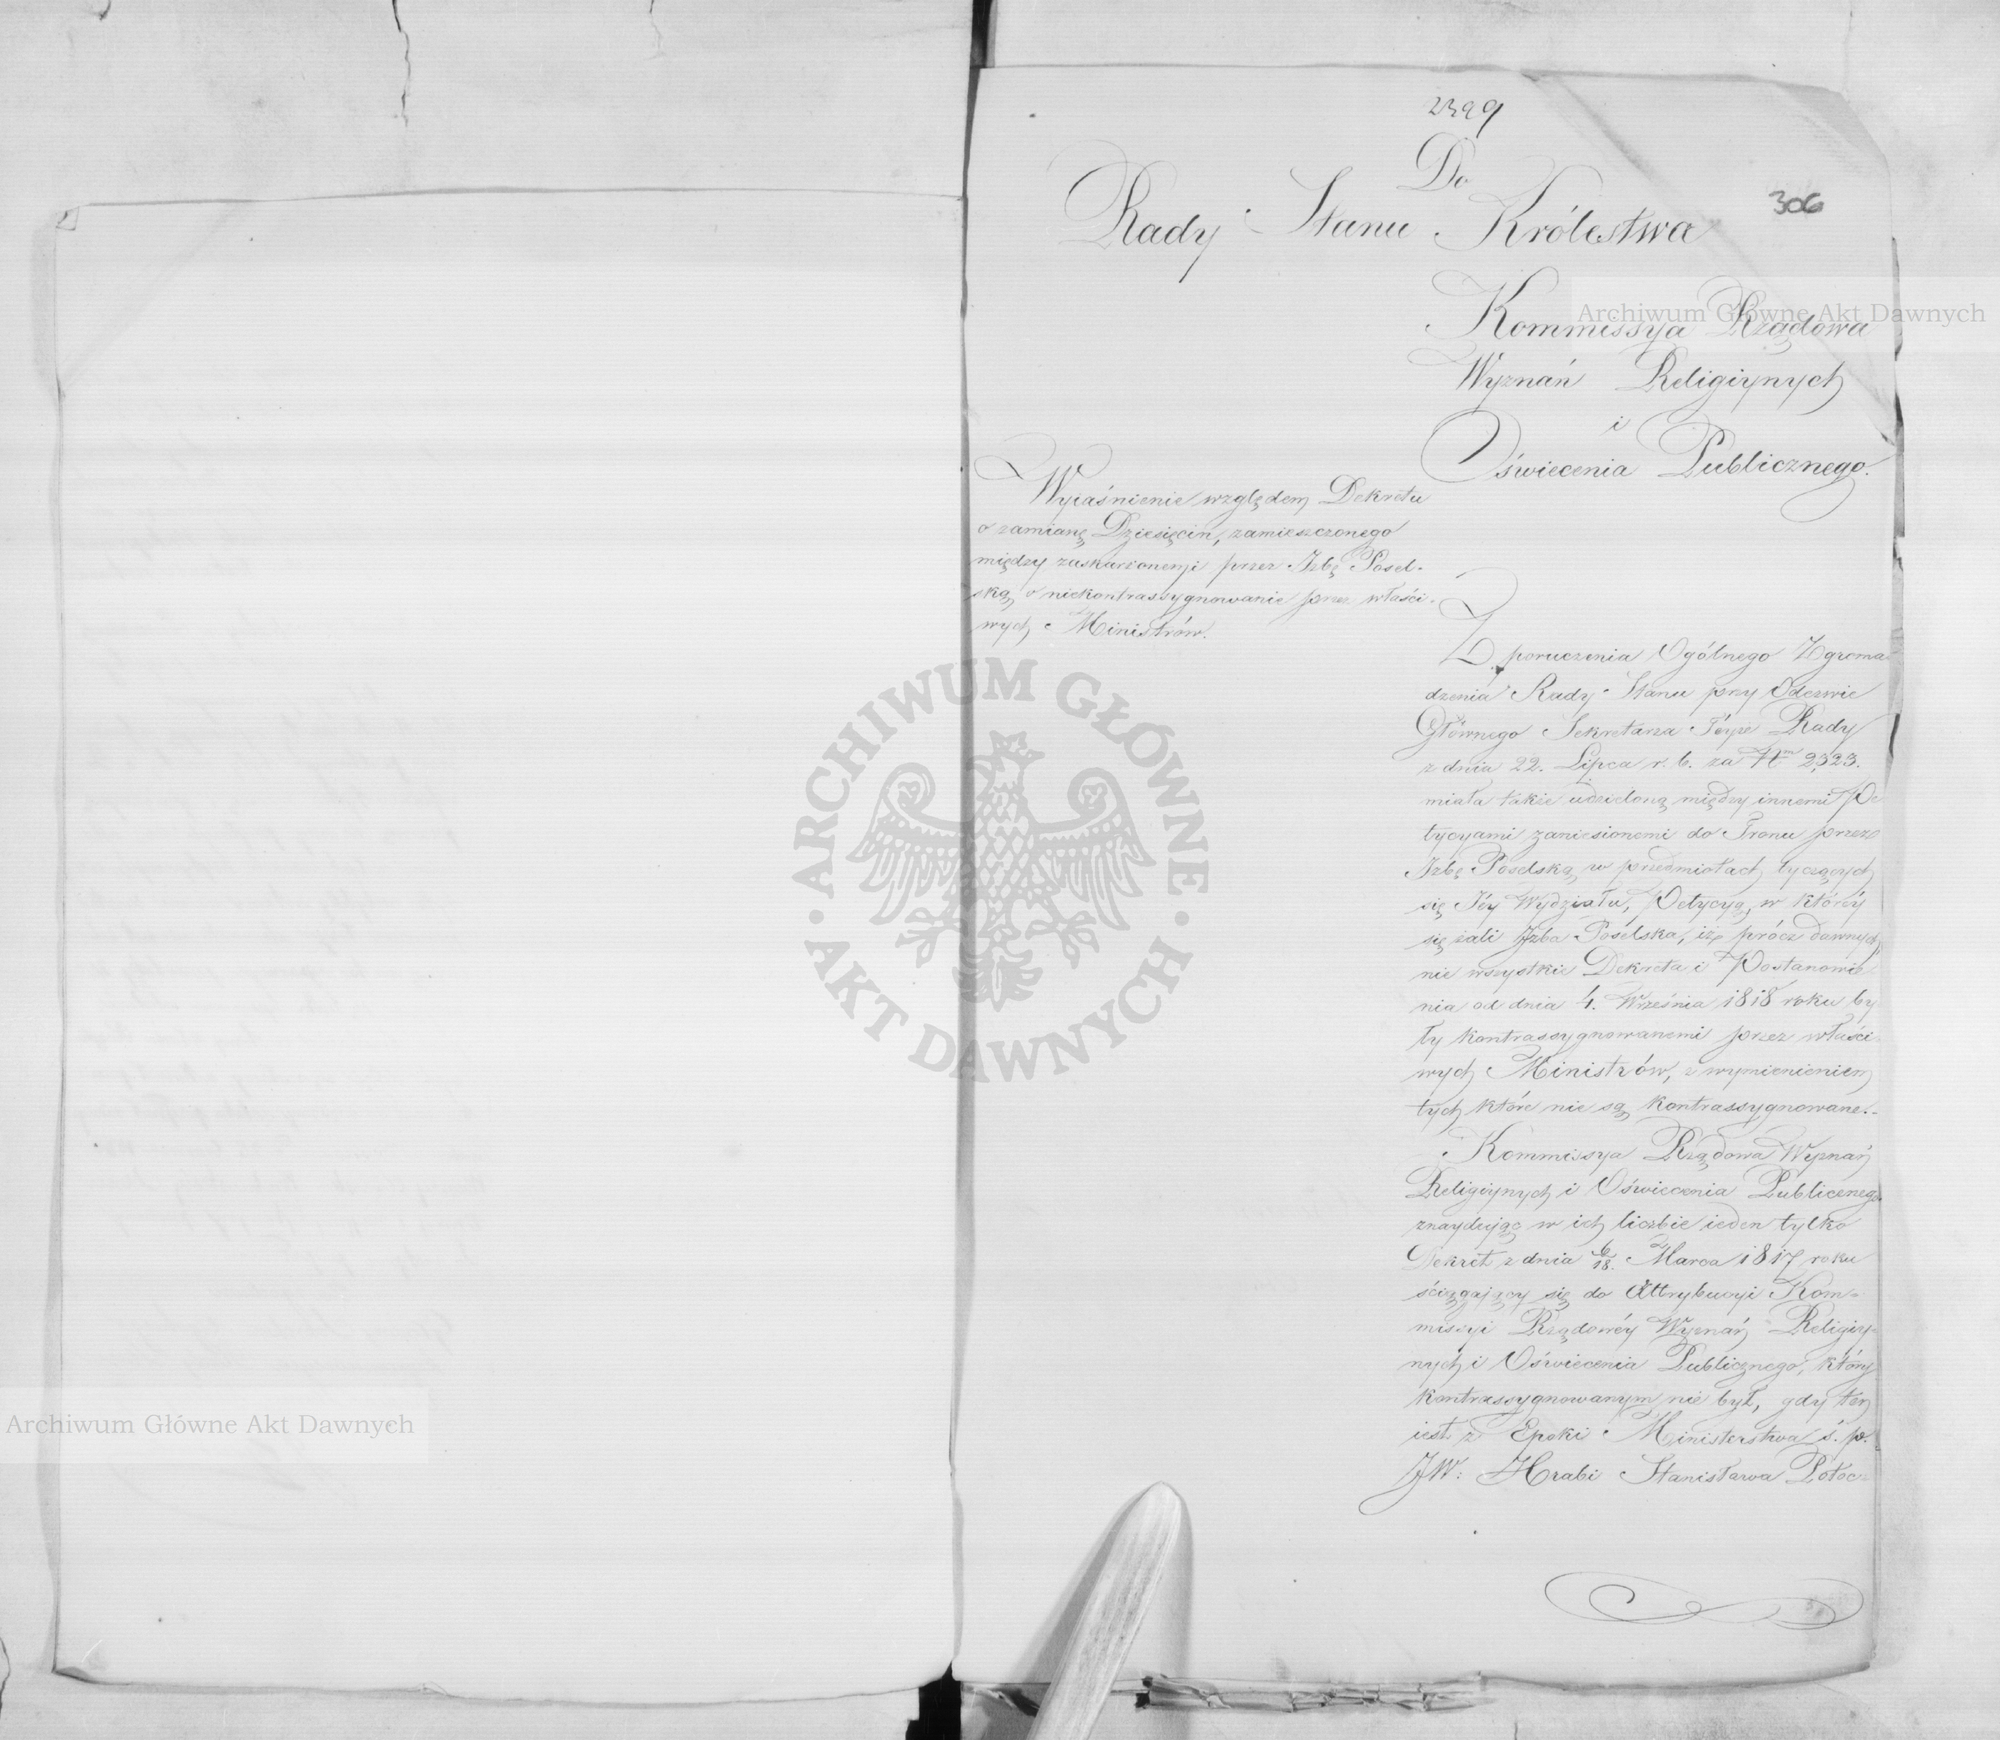 2399
306
Do
Rady Stanu Królestwa
Kommissya Rządowa
Wyznań Religiynych
i
Oświecenia Publicznego.
Wyiaśnienie względem Dekretu
o zamianę Dziesięcin, zamieszczonego
między zaskarżonemi przez Izbę Posel-
ską o niekontrassygnowanie przez właści-
wych Ministrów.
Z poruczenia Ogólnego Zgroma-
dzenia Rady Stanu przy Odezwie
Głównego Sekretarza Téyże Rady
z dnia 22. Lipca r. b. za Nm 2,323.
miała także udzieloną między innemi Pe-
tycyami zaniesionemi do Tronu przez
Izbę Poselską w przedmiotach tyczących
się Jéy Wydziału, Petycyą, w któréy
się żali Izba Poselska, iż prócz dawnych,
nie wszystkie Dekreta i Postanowie-
nia od dnia 4. Września 1818 roku by-
ły kontrassygnowanemi przez właści-
wych Ministrów, z wymienieniem
tych które nie są kontrassygnowane.-
Kommissya Rządowa Wyznań
Religiynych i Oświecenia Publicznego
znayduiąc w ich liczbie ieden tylko
Dekret z dnia 6/18. Marca 1817 roku
ściągaiący się do Attrybucyi Kom-
missyi Rządowéy Wyznań Religiy-
nych i Oświecenia Publicznego, który
kontrassygnowanym nie był, gdy ten
iest z Epoki Ministerstwa ś. p.
JW: Hrabi Stanisława Potoc-
Archiwum Główne Akt Dawnych
Archiwum Główne Akt Dawnych
ARCHIWUM GŁÓWNE
AKT DAWNYCH